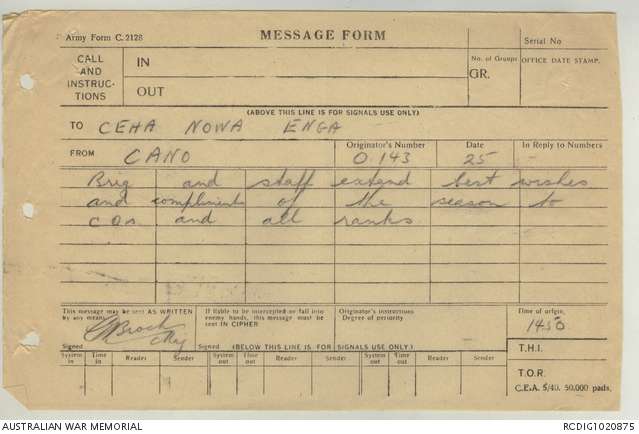 Army Form C. 2128
MESSAGE FORM
Serial No
CALL AND INSTRUC-TIONS
IN
OUT
No. of Groups
GR.
OFFICE DATE STAMP.
(ABOVE THIS LINE IS FOR SIGNALS USE ONLY)
TO CEHA NOWA ENGA
FROM CANO
Originator's Number
O.143
Date
25
In Reply to Numbers
-
Brig and staff extend best wishes
and compliments of the season to
COs and all ranks
This message may be sent AS WRITTEN by any means
If liable to be intercepted or fall into enemy hands, this message must be sent IN CIPHER
Originator's instructions
Degree of periority
Time of origin.
1450
Brock Maj
Signed
Signed
(BELOW THIS LINE IS FOR SIGNALS USE ONLY)
T.H.I.
System in
Time in
Reader
Sender
System out
Time out
Reader
Sender
System out
Time out
Reader
Sender
T.O.R.
C.E.A. 5/40. 50,000 pads.
AUSTRALIAN WAR MEMORIAL
RCDIG1020875